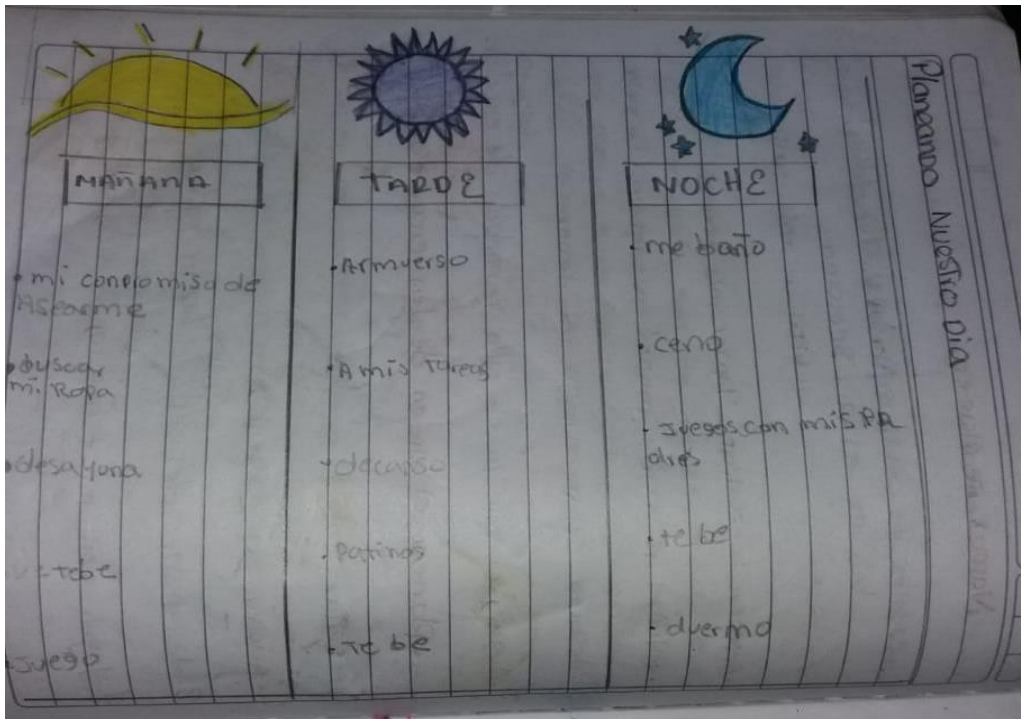 Planeando Nuestro Dia
MAÑANA
• mi conpromiso de
Asearme
• buscar
mi Ropa
• desayuna
tebe
• Juego
TARDE
• Armuerso
• A mis Tareas
• decanso
• Patinos
• te be
NOCHE
• me baño
• ceno
- Juegos con mis PA
dres
• te be
- duermo